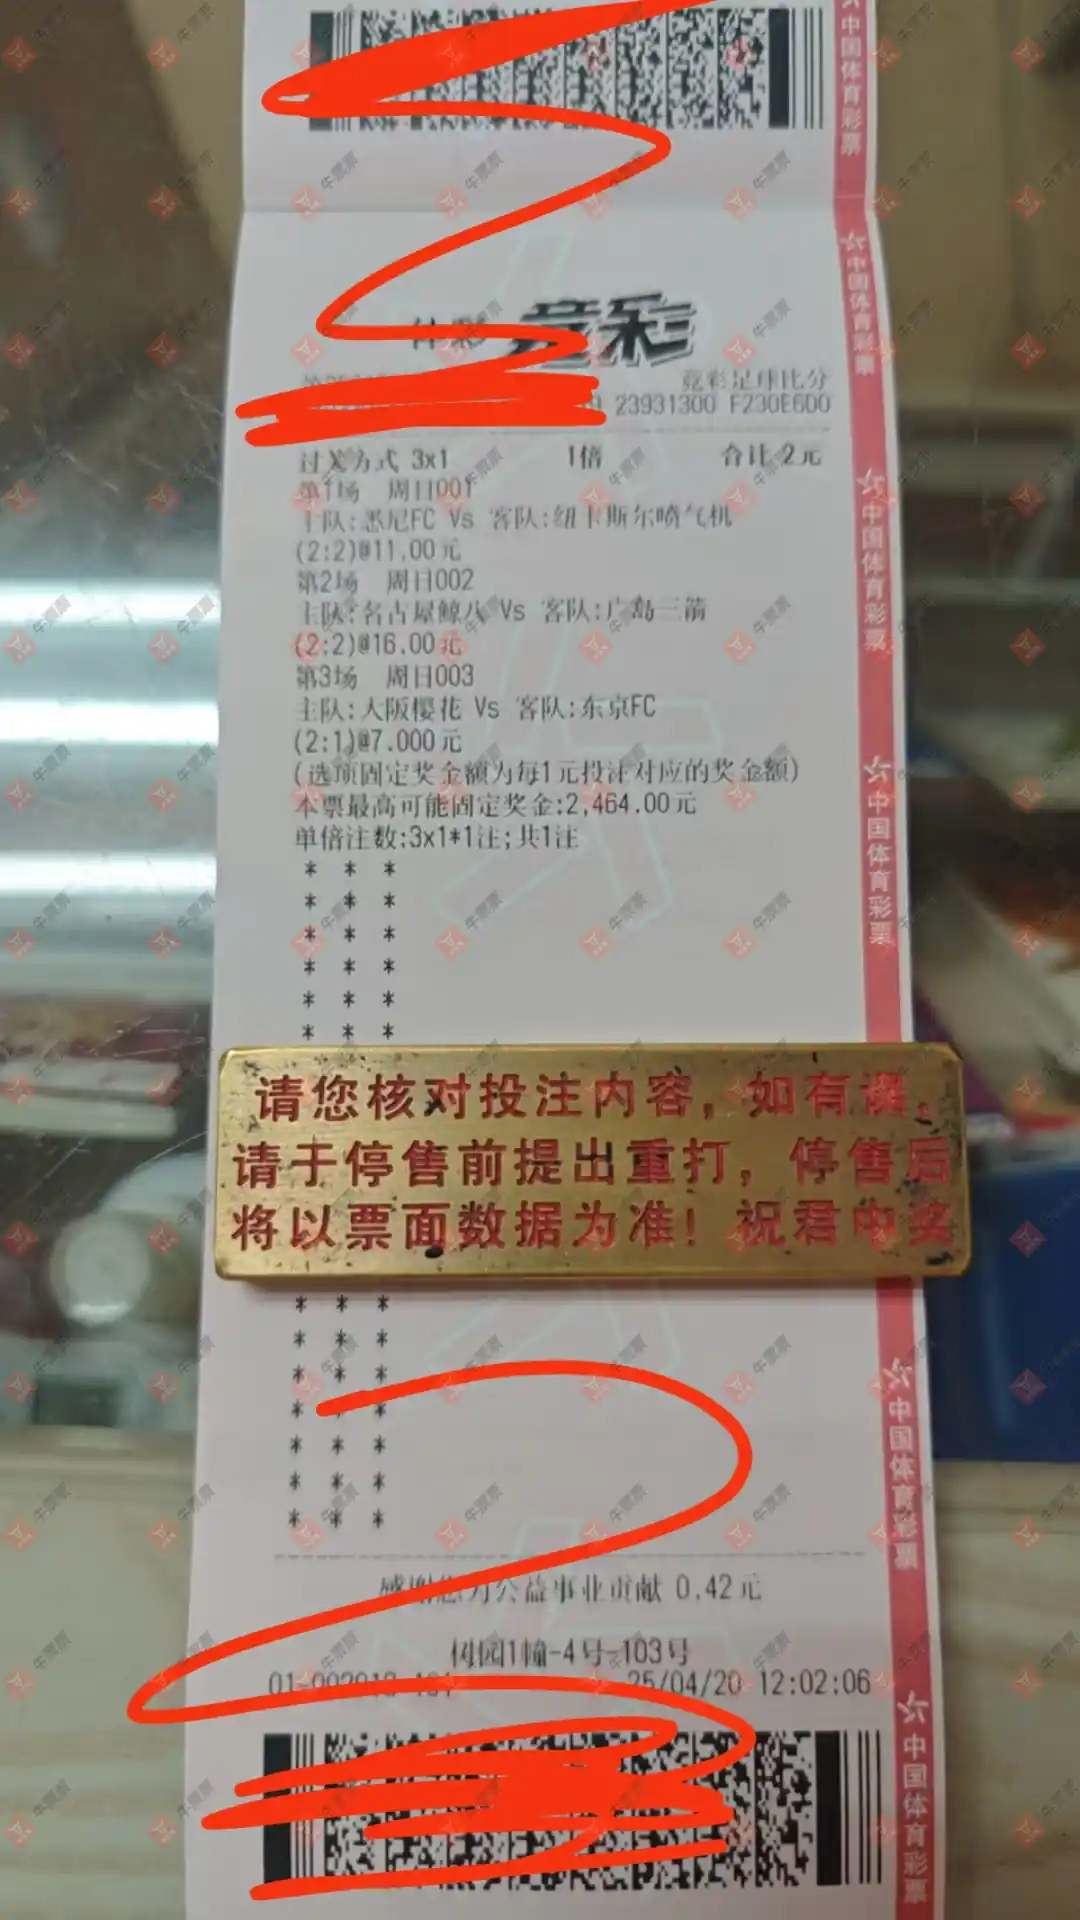 中国体育彩票
竞彩
竞彩足球比分
23931300 F230E6D0
过关方式 3x1 1倍 合计 2元
第1场 周日001
主队:悉尼FC Vs 客队:纽卡斯尔喷气机
(2:2)@11.00元
第2场 周日002
主队:名古屋鲸八 Vs 客队:广岛三箭
(2:2)@16.00元
第3场 周日003
主队:大阪樱花 Vs 客队:东京FC
(2:1)@7.000元
(选项固定奖金额为每1元投注对应的奖金额)
本票最高可能固定奖金:2,464.00元
单倍注数:3x1*1注;共1注
* * *
* * *
* * *
* * *
* * *
* * *
请您核对投注内容，如有误、
请于停售前提出重打，停售后
将以票面数据为准！祝君中奖
* * *
* * *
* * *
* * *
* * *
* * *
* * *
感谢您为公益事业贡献 0.42元
树园1幢-4号-103号
25/04/20 12:02:06
中国体育彩票
中国体育彩票
中国体育彩票
中国体育彩票
中国体育彩票
牛票票